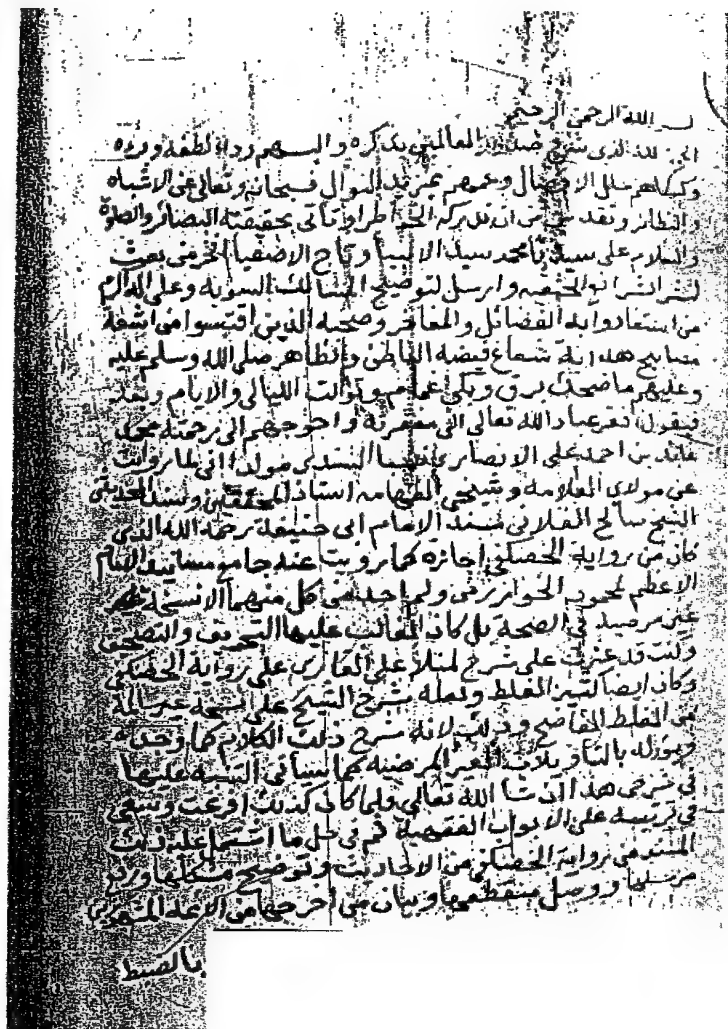 بسم الله الرحمن الرحيم
الحمد لله الذي شرح صدور العالمين بذكره والبسهم رداء لطفه وبره
وكساهم حلل الافضال وعمهم بمزيد النوال فسبحانه وتعالى عن الاشباه
والنظائر وتقدس من ان تدركه الخواطر او تأتي بحقيقته البصائر والصلوة
والسلام على سيدنا محمد سيد الانبيا وتاج الاصفيا الذي بعث
لنشر الشرائع الحنيفيه وارسل لتوضيح المسالك السويه وعلى اله
من استعاد وابه الفضائل والمفاخر وصحبه الذين اقتبسوا من اشعة
مصابيح هدايته شعاع فيضه الباطن والظاهر صلى الله وسلم عليه
وعليهم ما ضحك برق وبكى غمام وتوالت الليالي والايام وبعد
فيقول افقر عباد الله تعالى الى مغفرته واحوجهم الى رحمته محمد
عابد بن احمد علي الانصاري نسبا السندي مولدا اني لما رويت
عن مولاي العلامة وشيخي الفهامه استاذ المحققين وسند المحدثين
الشيخ صالح الفلاني مسند الامام ابي حنيفة رحمه الله الذي
كان من رواية الحصكفي اجازه كما رويت عنه جامع مسانيد الامام
الاعظم لمحمود الخوارزمي ولم اجد من كل منهما الا نسخة
غير مرضية في الصحة بل كان الغالب عليها التحريف والتصحيف
وكنت قد عثرت على شرح لمنلا علي القاري على رواية الحصكفي
وكان ايضا كثير الغلط ولعله شرح الشيخ على نسخة غير سالمة
من الغلط الفاضح وذلك لانه شرح ذلك الكلام كما وجده
ويؤوله بالتأويلات الغير المرضيه كما سيأتي التنبيه عليها
في شرحي هذا ان شا الله تعالى ولما كان كذلك افرغت وسعي
في ترتيبه على الابواب الفقهية ثم في حل ما اشتمل عليه ذلك
المسند من رواية الحصكفي من الاحاديث وتوضيح مشكلها ورفع
مرسلها ووصل منقطعها وبيان من اخرجها من الائمة المشهورين
بالضبط